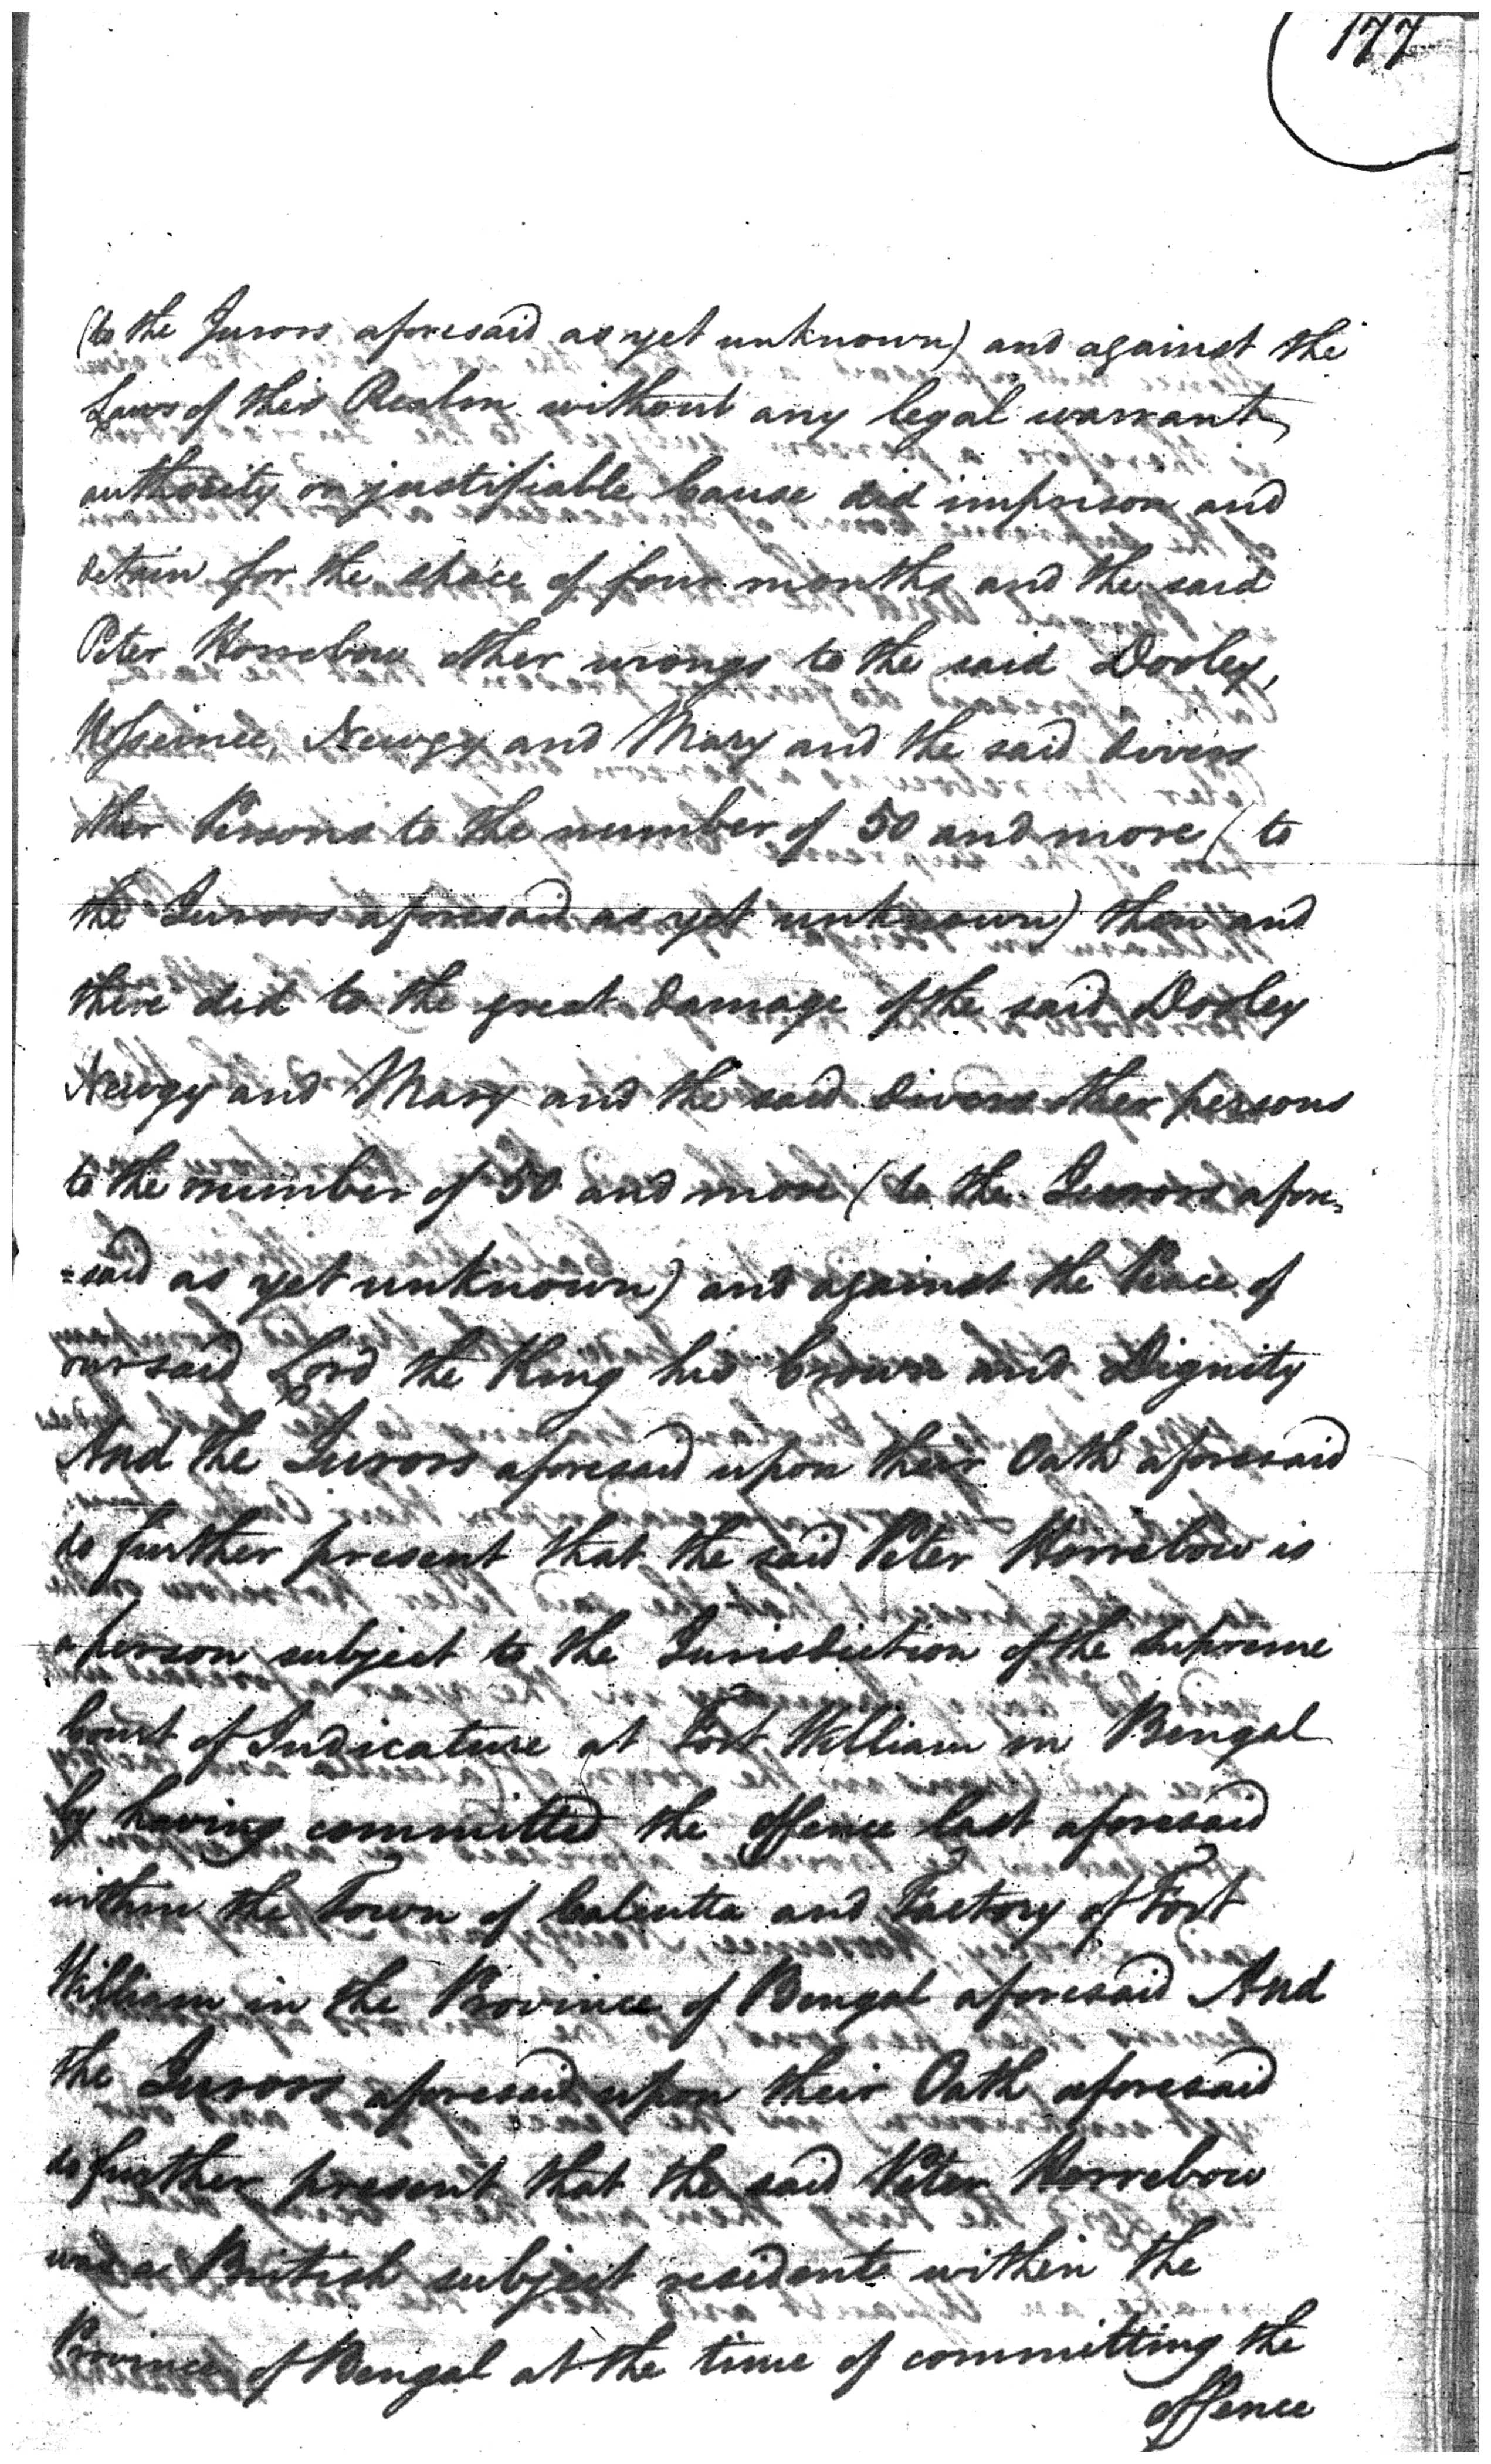 177
(to the Jurors aforesaid as yet unknown) and against the
Laws of this Realm without any legal warrant,
authority or justifiable Cause did imprison and
detain for the space of four months and the said
Peter Horrebow other wrongs to the said Dooley,
Newgy and Mary and the said divers
other Persons to the number of 50 and more (to
the Jurors aforesaid as yet unknown) then and
there did to the great damage of the said Dooley
Newgy and Mary and the said divers other persons
to the number of 50 and more (to the Jurors afore=
=said as yet unknown) and against the Peace of
our said Lord the King his Crown and Dignity
And the Jurors aforesaid upon their Oath aforesaid
do further present that the said Peter Horrebow is
a person subject to the Jurisdiction of the Supreme
Court of Judicature at Fort William in Bengal
by having committed the offence last aforesaid
within the Town of Calcutta and Factory of Fort
William in the Province of Bengal aforesaid And
the Jurors aforesaid upon their Oath aforesaid
do further present that the said Peter Horrebow
was a British subject residente within the
Province of Bengal at the time of committing the
offence